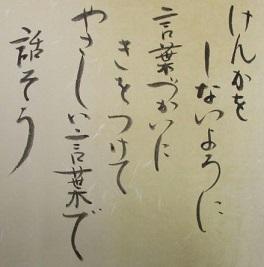 けんかを
しないように
言葉づかいに
きをつけて
やさしい言葉で
話そう